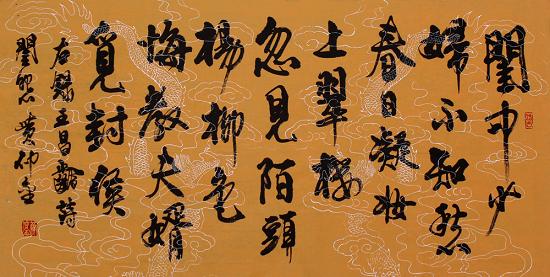 閨中少
婦不知愁
春日凝妆
上翠樓
忽見陌頭
楊柳色
悔教夫婿
覓封侯
右錄王昌齡詩
閨怨 黄仲金